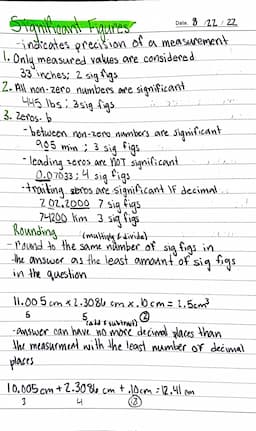 Significant Figures
Date. 8/22/22
-indicates precision of a measurement
1. Only measured values are considered
33 inches; 2 sig figs
2. All non-zero numbers are significant
445 lbs; 3 sig figs
3. Zeros-
-between non-zero numbers are significant
905 min; 3 sig figs
-leading zeros are NOT significant
0.07033; 4 sig figs
-trailing zeros are significant IF decimal
202.2000 7 sig figs
74200 km 3 sig figs
Rounding (multiply & divide)
-round to the same number of sig figs in
the answer as the least amount of sig figs
in the question
11.005cm x 2.3086 cm x .10cm = 2.5cm³
5 5 2
(add & subtract)
-answer can have no more decimal places than
the measurment with the least number of decimal
places
10.005cm + 2.3086 cm + .10cm = 12.41 cm
3 4 2